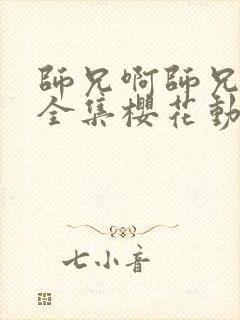 師兄啊師兄
全集櫻花動
七小音